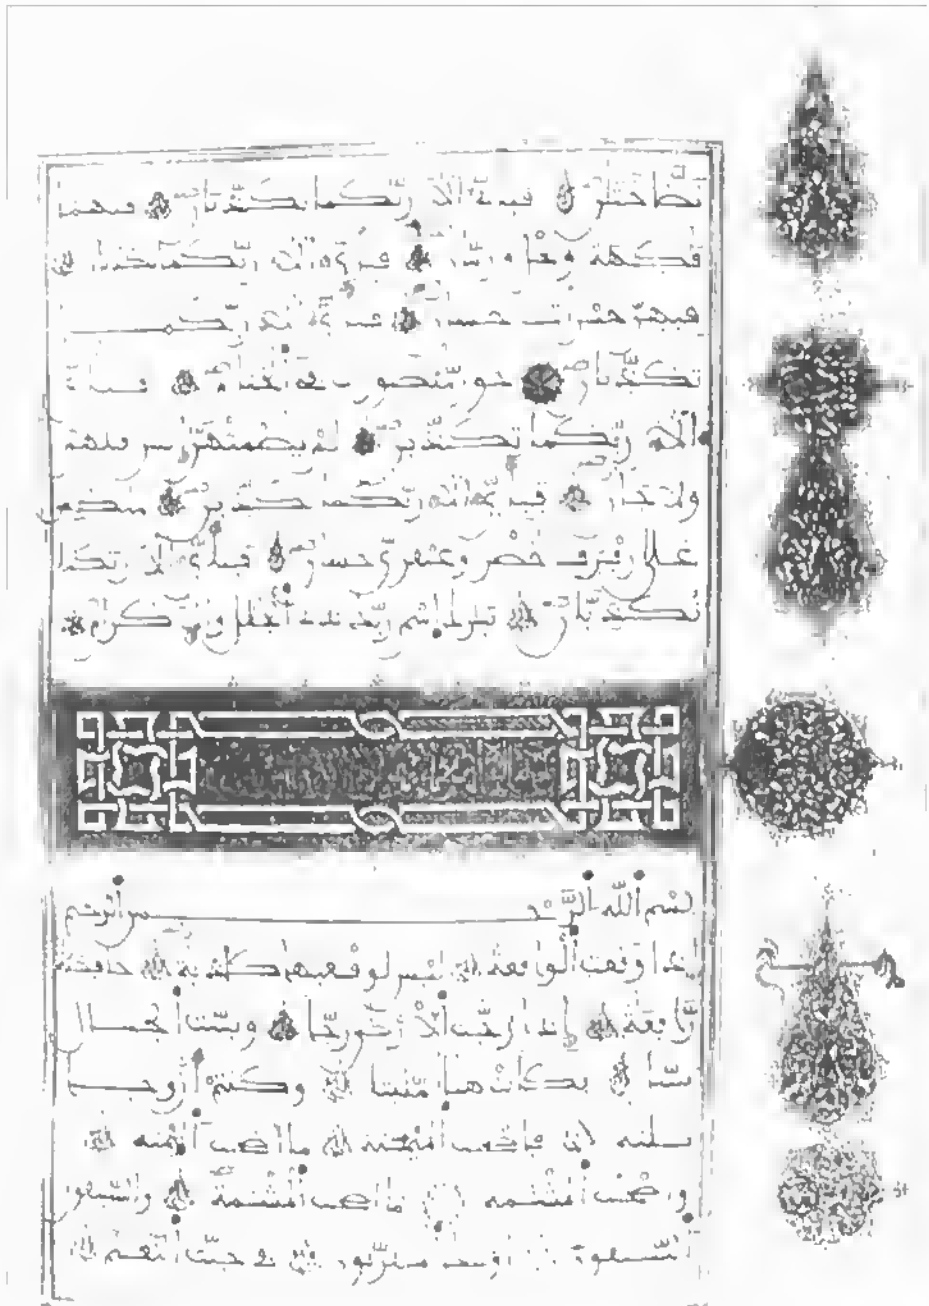 نضاختن فبأي آلاء ربكما تكذبان فيهما
فكهة ونخل ورمان فبأي آلاء ربكما تكذبان
فيهن خيرات حسان فبأي آلاء ربكما
تكذبان حور مقصورت في الخيام فبأي
آلاء ربكما تكذبان لم يطمثهن إنس قبلهم
ولا جان فبأي آلاء ربكما تكذبان متكـين
على رفرف خضر وعبقري حسان فبأي آلاء ربكما
تكذبان تبرك اسم ربك ذي الجلل والإكرام
بسم الله الرحمن الرحيم
إذا وقعت الواقعة ليس لوقعتها كاذبة خافضة
رافعة إذا رجت الأرض رجا وبست الجبال
بسا فكانت هباء منبثا وكنتم أزوجا
ثلثة فأصحب الميمنة ما أصحب الميمنة
وأصحب المشـمة ما أصحب المشـمة والسبقون
السبقون أولئك المقربون في جنت النعيم